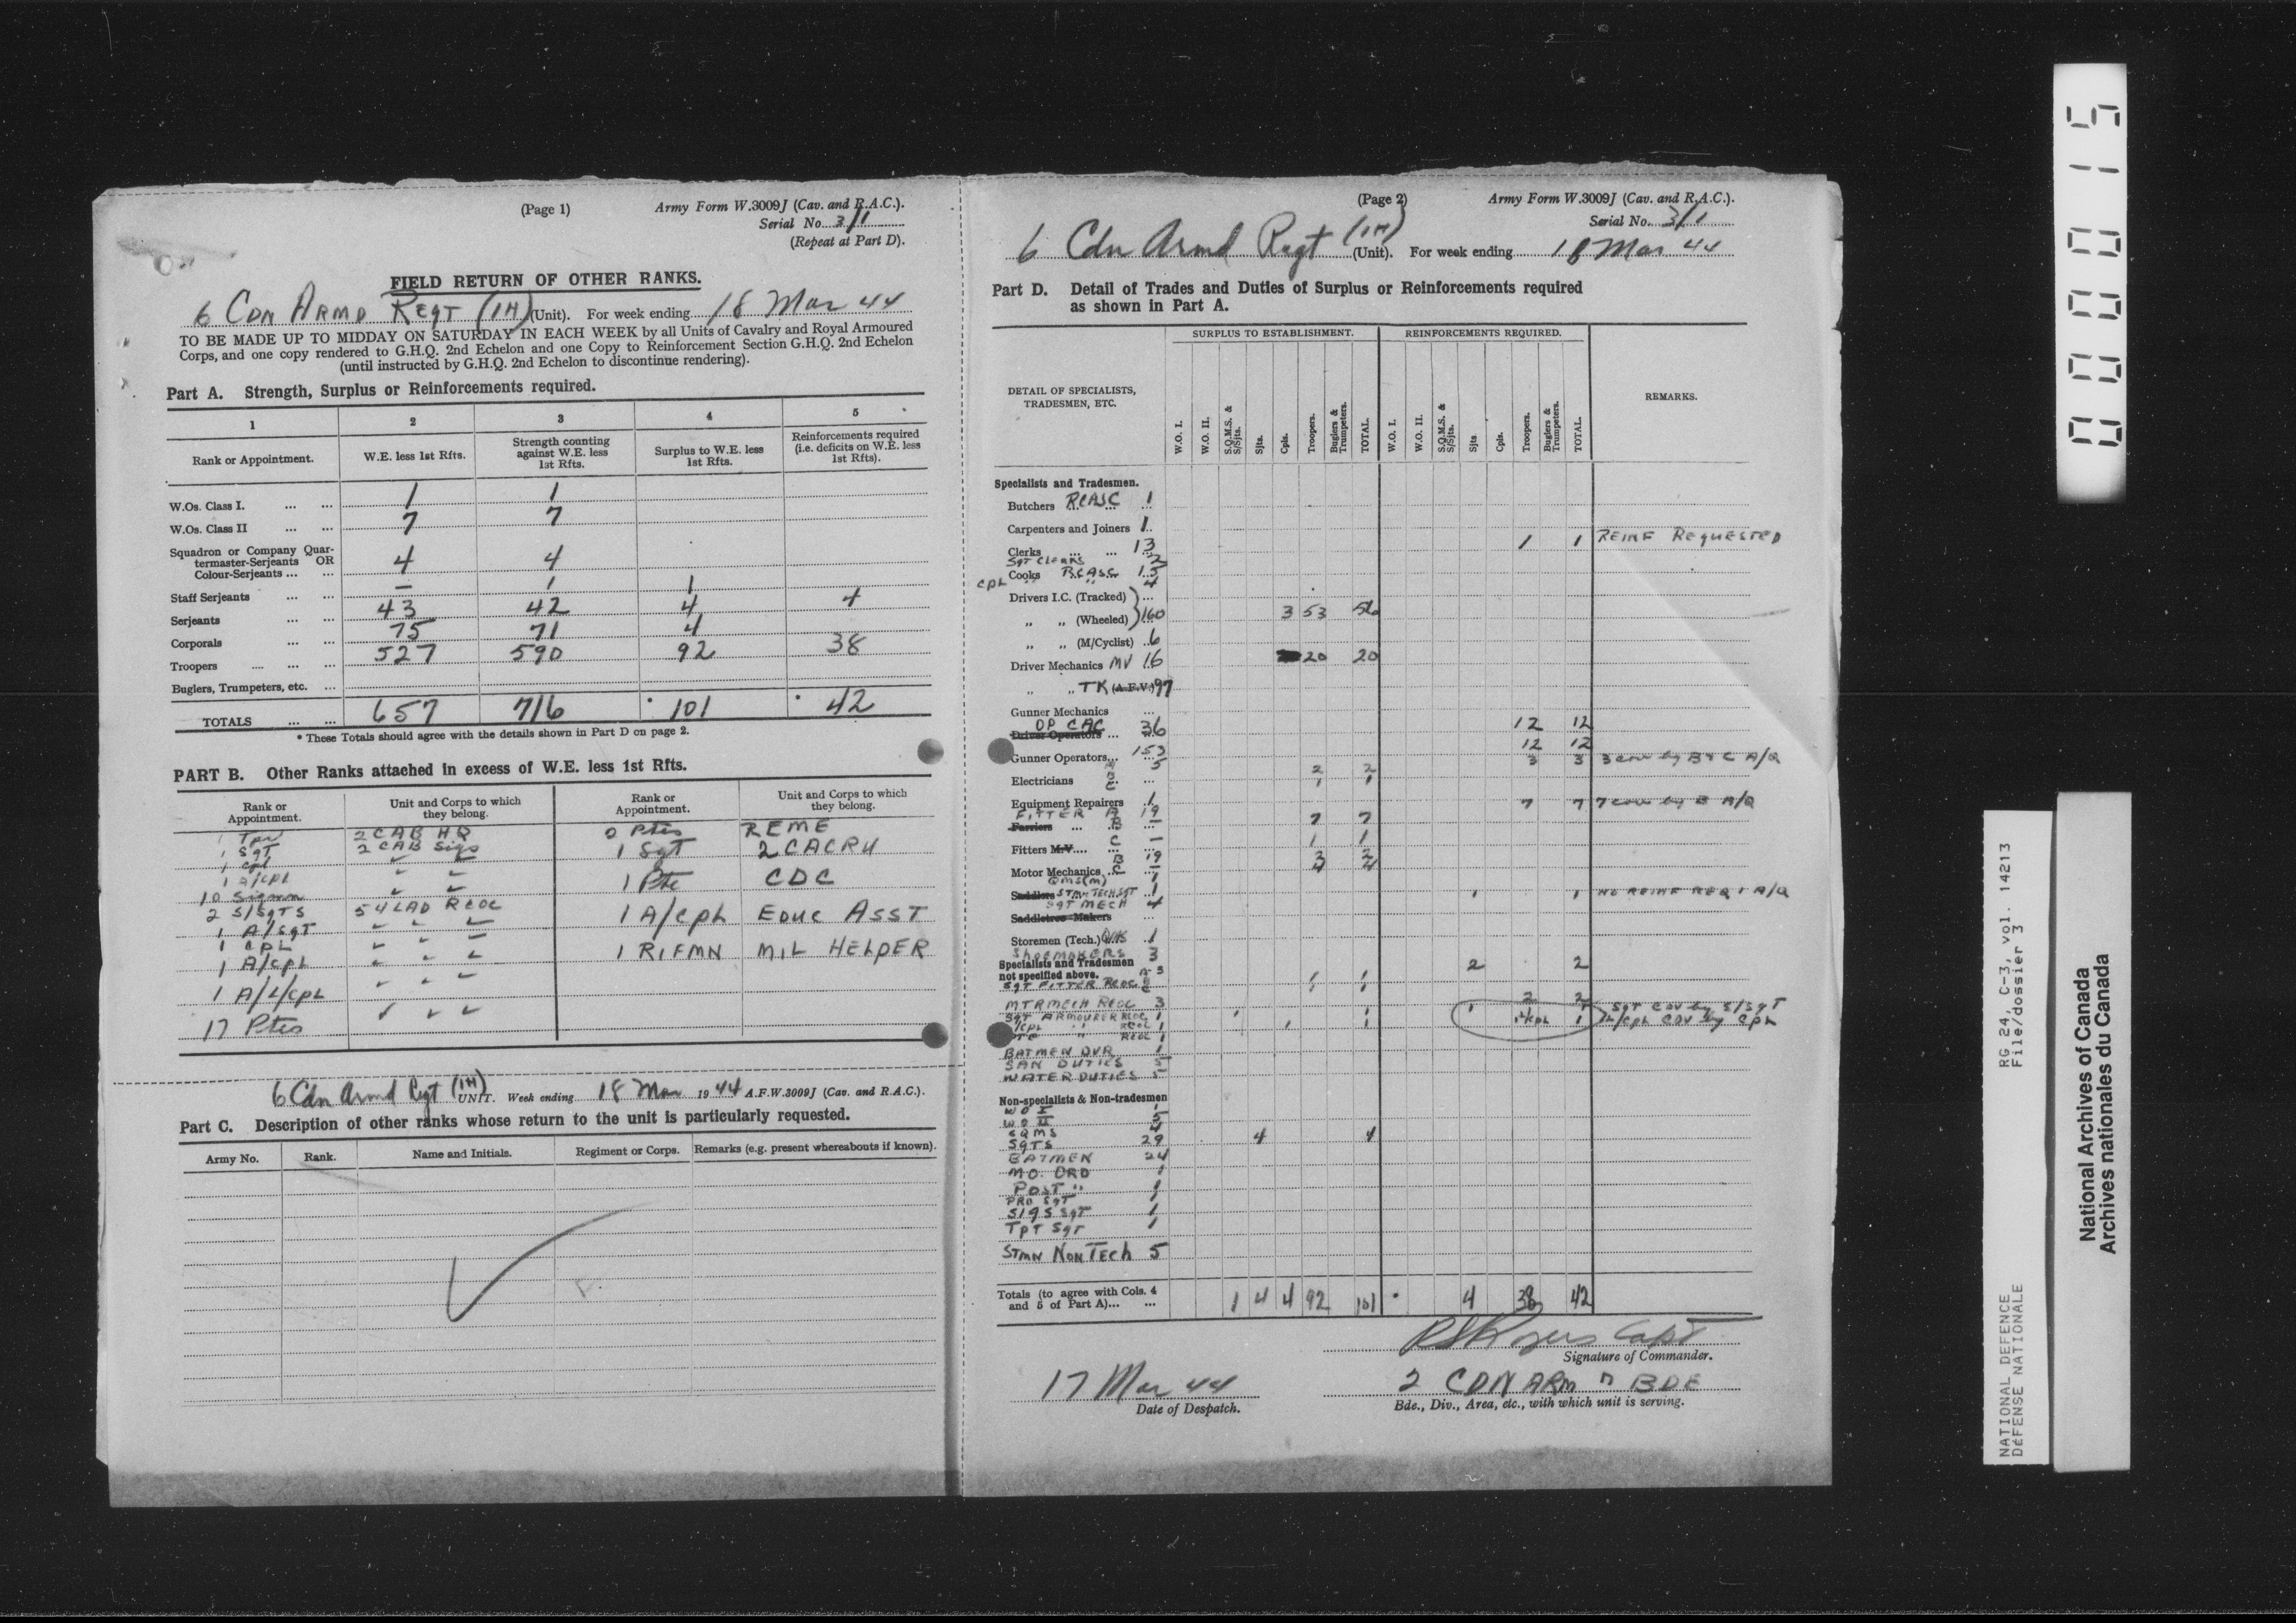 (Page 1) Army Form W.3009J (Cav. and R.A.C.).
Serial No. 3/1
(Repeat at Part D).
FIELD RETURN OF OTHER RANKS.
6 CDN ARMD REGT (1H) (Unit). For week ending 18 Mar 44
TO BE MADE UP TO MIDDAY ON SATURDAY IN EACH WEEK by all Units of Cavalry and Royal Armoured
Corps, and one copy rendered to G.H.Q. 2nd Echelon and one Copy to Reinforcement Section G.H.Q. 2nd Echelon
(until instructed by G.H.Q. 2nd Echelon to discontinue rendering).
Part A. Strength, Surplus or Reinforcements required.
1 2 3 4 5
Rank or Appointment. W.E. less 1st Rfts. Strength counting against W.E. less 1st Rfts. Surplus to W.E. less 1st Rfts. Reinforcements required (i.e. deficits on W.E. less 1st Rfts).
W.Os. Class I. ... ... 1 1
W.Os. Class II ... ... 7 7
Squadron or Company Quar-
termaster-Serjeants OR
Colour-Serjeants ... ... 4 4
Staff Serjeants ... ... — 1 1
Serjeants ... ... 43 42 4 4
Corporals ... ... 75 71 4
Troopers ... ... ... 527 590 92 38
Buglers, Trumpeters, etc. ...
TOTALS ... ... 657 716 101 42
* These Totals should agree with the details shown in Part D on page 2.
PART B. Other Ranks attached in excess of W.E. less 1st Rfts.
Rank or Appointment. Unit and Corps to which they belong. Rank or Appointment. Unit and Corps to which they belong.
1 Tpr 2 CAB HQ Ptes REME
1 Sgt 2 CAB Sigs 1 Sgt 2 CACRU
1 Cpl ✓ ✓
1 A/Cpl ✓ ✓ 1 Pte CDC
10 Sigmn ✓ ✓
2 S/SGTS 54 LAD RCOC 1 A/Cpl EDUC ASST
1 A/SGT ✓ ✓ ✓
1 CPL ✓ ✓ ✓ 1 RIFMN MIL HELPER
1 A/CPL ✓ ✓ ✓
1 A/L/CPL ✓ ✓ ✓
17 Ptes ✓ ✓ ✓
6 Cdn Armd Regt (1H) UNIT. Week ending 18 Mar 1944 A.F.W.3009J (Cav. and R.A.C.).
Part C. Description of other ranks whose return to the unit is particularly requested.
Army No. Rank. Name and Initials. Regiment or Corps. Remarks (e.g. present whereabouts if known).
(Page 2) Army Form W.3009J (Cav. and R.A.C.).
Serial No. 3/1
6 Cdn Armd Regt (1H) (Unit). For week ending 18 Mar 44
Part D. Detail of Trades and Duties of Surplus or Reinforcements required
as shown in Part A.
SURPLUS TO ESTABLISHMENT. REINFORCEMENTS REQUIRED.
DETAIL OF SPECIALISTS, TRADESMEN, ETC. W.O. I. W.O. II. S.Q.M.S. & S/Sjts. Sjts. Cpls. Troopers. Buglers & Trumpeters. TOTAL. W.O. I. W.O. II. S.Q.M.S. & S/Sjts. Sjts Cpls. Troopers. Buglers & Trumpeters. TOTAL. REMARKS.
Specialists and Tradesmen.
Butchers RCASC 1
Carpenters and Joiners 1
Clerks ... ... 13 1 1 REINF REQUESTED
SGT CLERKS 2
Cooks RCASC 15
CPL " " 4
Drivers I.C. (Tracked) ...
„ „ (Wheeled) 160 3 53 56
„ „ (M/Cyclist) 6
Driver Mechanics MV 16 20 20
„ „ TK (A.F.V.) 97
Gunner Mechanics ...
OP CAC 36 12 12
Driver Operators ...
Gunner Operators ... 153 12 12
5 2 2 3 3 3 cov by B & C A/Q
Electricians B ...
C 1 1
Equipment Repairers 1 7 7 7 cov by B A/Q
FITTER A 19
Farriers ... B — 7 7
Fitters M.V.... C — 1 1
Motor Mechanics B 19
C —
QMS(M) 1
Saddlers STMN TECH SGT 1 1 1 NO REINF REQ A/Q
SGT MECH 4
Saddletree Makers ...
Storemen (Tech.) 1
SHOEMAKERS 3
Specialists and Tradesmen
not specified above. 2 2
SGT FITTER RCOC
MTRMECH RCOC 3 2 2
SGT ARMOURER RCOC 1 1 1 1 1 SGT COV by S/SGT
L/CPL " RCOC 1 1 1 1L/CPL 1 L/CPL COV by CPL
PTE " RCOC 1
BATMEN DVR 1
SAN DUTIES 5
WATER DUTIES 5
Non-specialists & Non-tradesmen
WO I 1
WO II 5
SQMS 4
SGTS 29 4 4
BATMEN 24
MO. ORD 1
POST " 1
PRO SGT 1
SIGS SGT 1
TPT SGT 1
STMN NON TECH 5
Totals (to agree with Cols. 4
and 5 of Part A)... ... 1 4 4 92 101 4 38 42
Capt
Signature of Commander.
17 Mar 44 2 CDN ARMD BDE
Date of Despatch. Bde., Div., Area, etc., with which unit is serving.
000015
RG 24, C-3, vol. 14213
File/dossier 3
NATIONAL DEFENCE
DÉFENSE NATIONALE
National Archives of Canada
Archives nationales du Canada